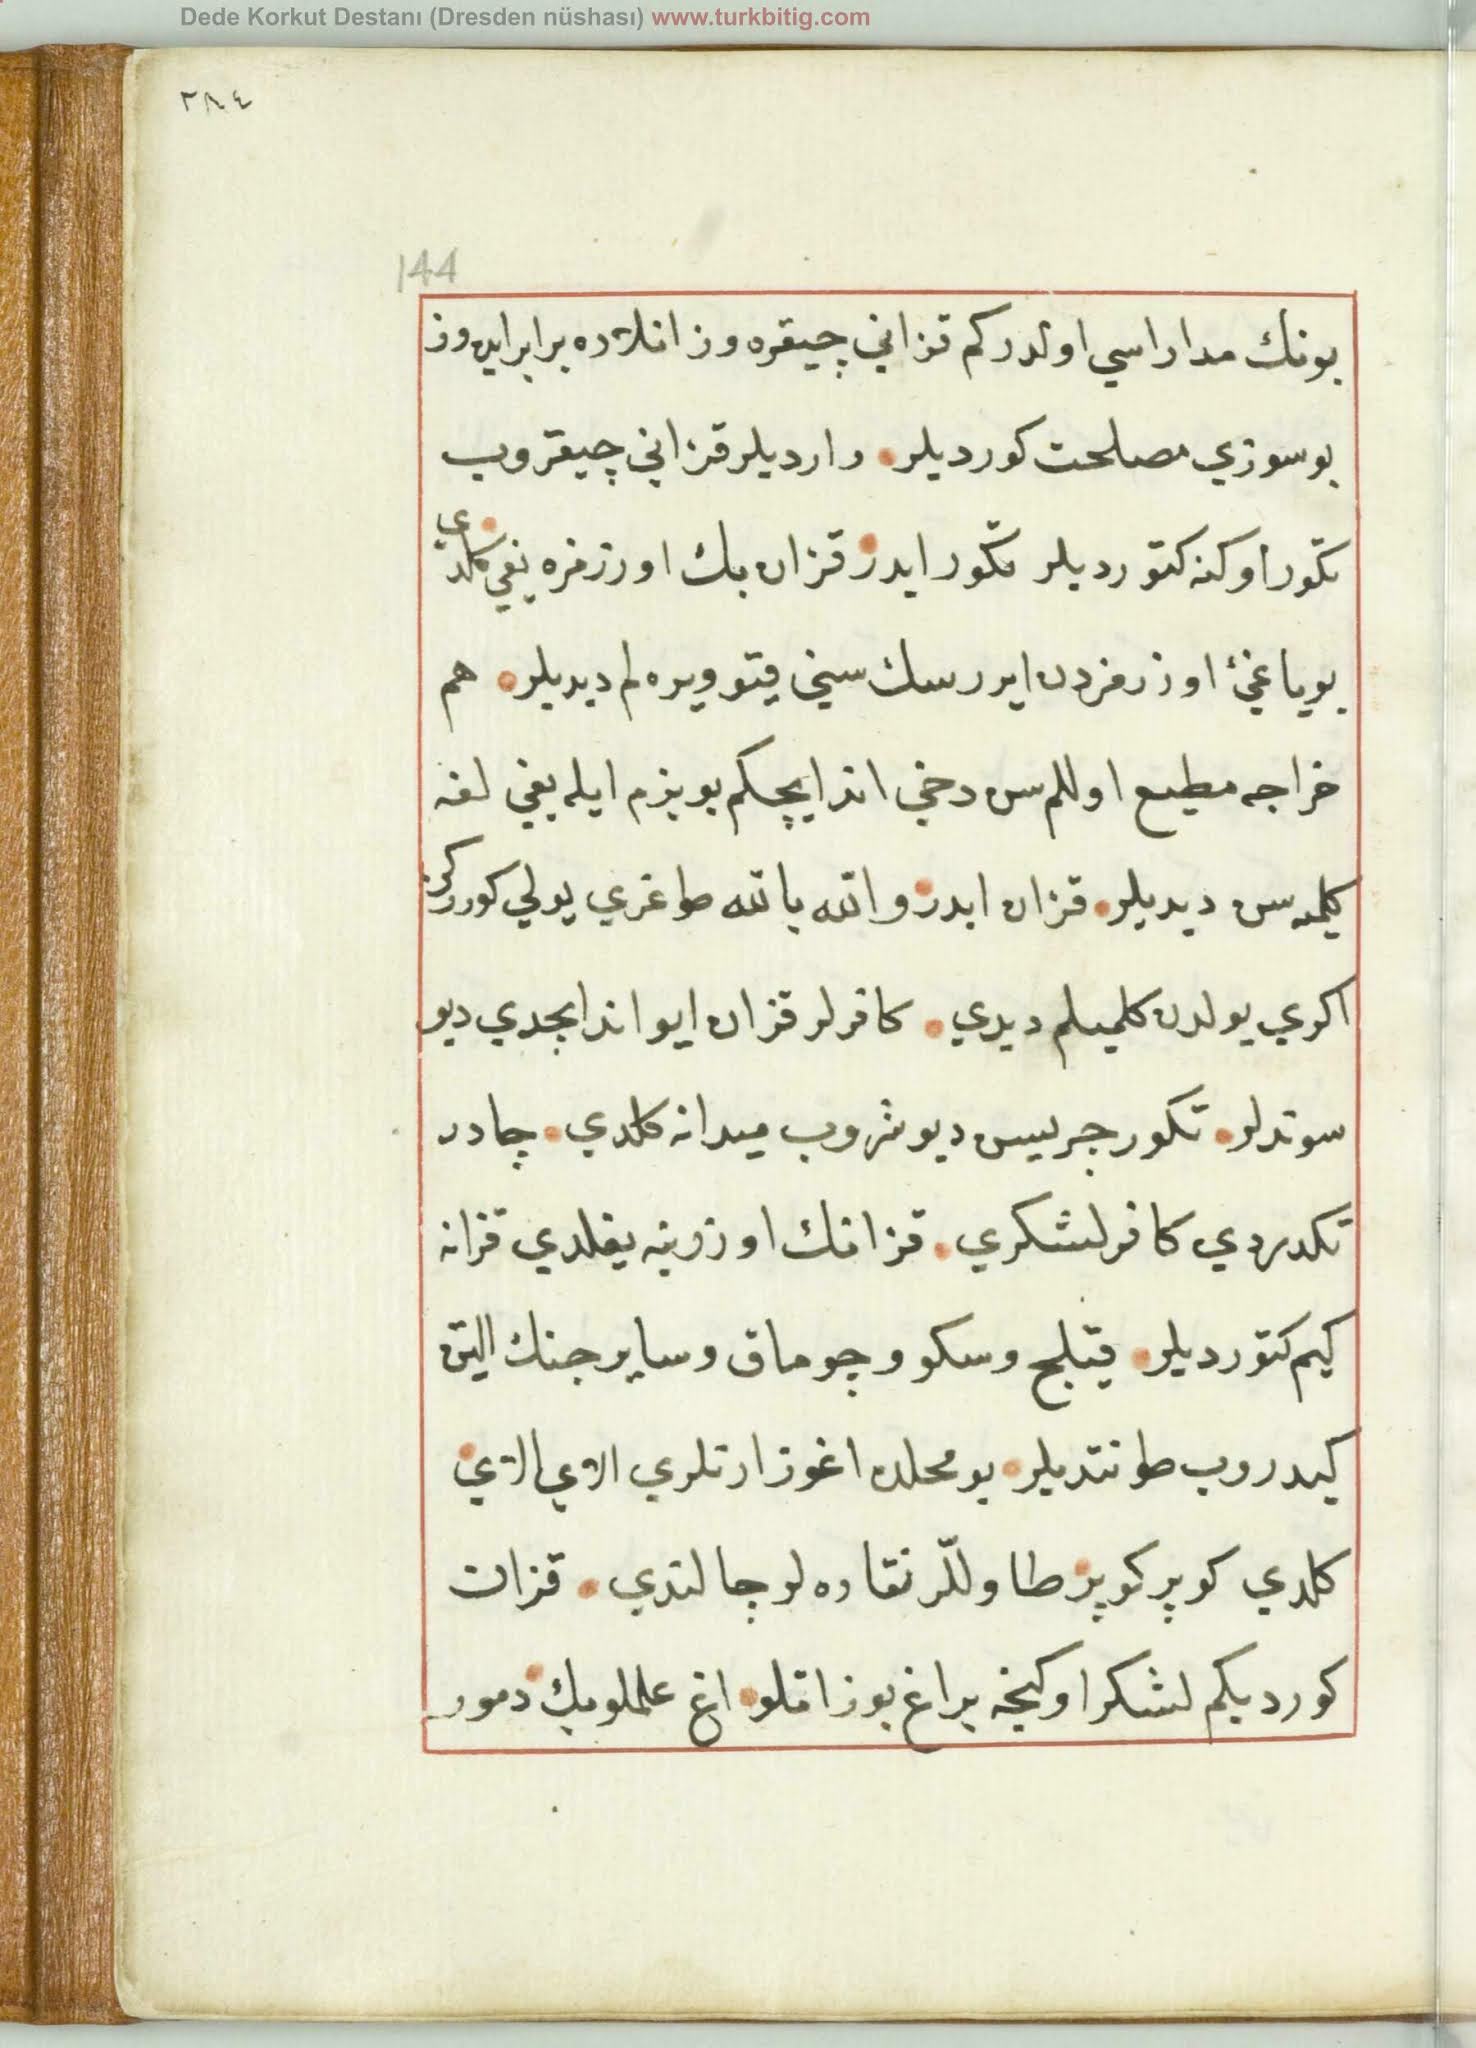 Dede Korkut Destanı (Dresden nüshası) www.turkbitig.com
٢٨٤
144
بونك مداراسي اولدركم قزاني چيقره وز انلارده برابر ايده وز
بو سوزي مصلحت كورديلر وارديلر قزاني چيقروب
تكور اوكنه كتورديلر تكور ايدر قزان بك اوزرمزه يغي كلدي
بو ياغيئ اوزرمزدن اييررسك سني قيو ويره لم ديديلر هم
خراجه مطيع اوللم سن دخي اند ايچكم بو بزم ايله يغي لغه
كلميه سن ديديلر قزان ايدر والله بالله طاغري يولي كورركن
اكري يولدن كلميلم ديدي كافرلر قزان ايو اند ايچدي ديو
سوندلر تكور جريسن ديوشروب ميدانه كلدي چادر
تكدردي كافر لشكري قزانك اوزرينه يغلدي قزانه
كيم كتورديلر قيلج و سكو و چوماق و ساير جنك التن
كيدروب طونتديلر بو محلده اغوز ارنلري الاي الاي
كلدي كوپر كوپر طاوللر نقاره لر چالندي قزان
كورديكم لشكر اوكنجه بر اغ بوز اتلو اغ علملو بك دمور